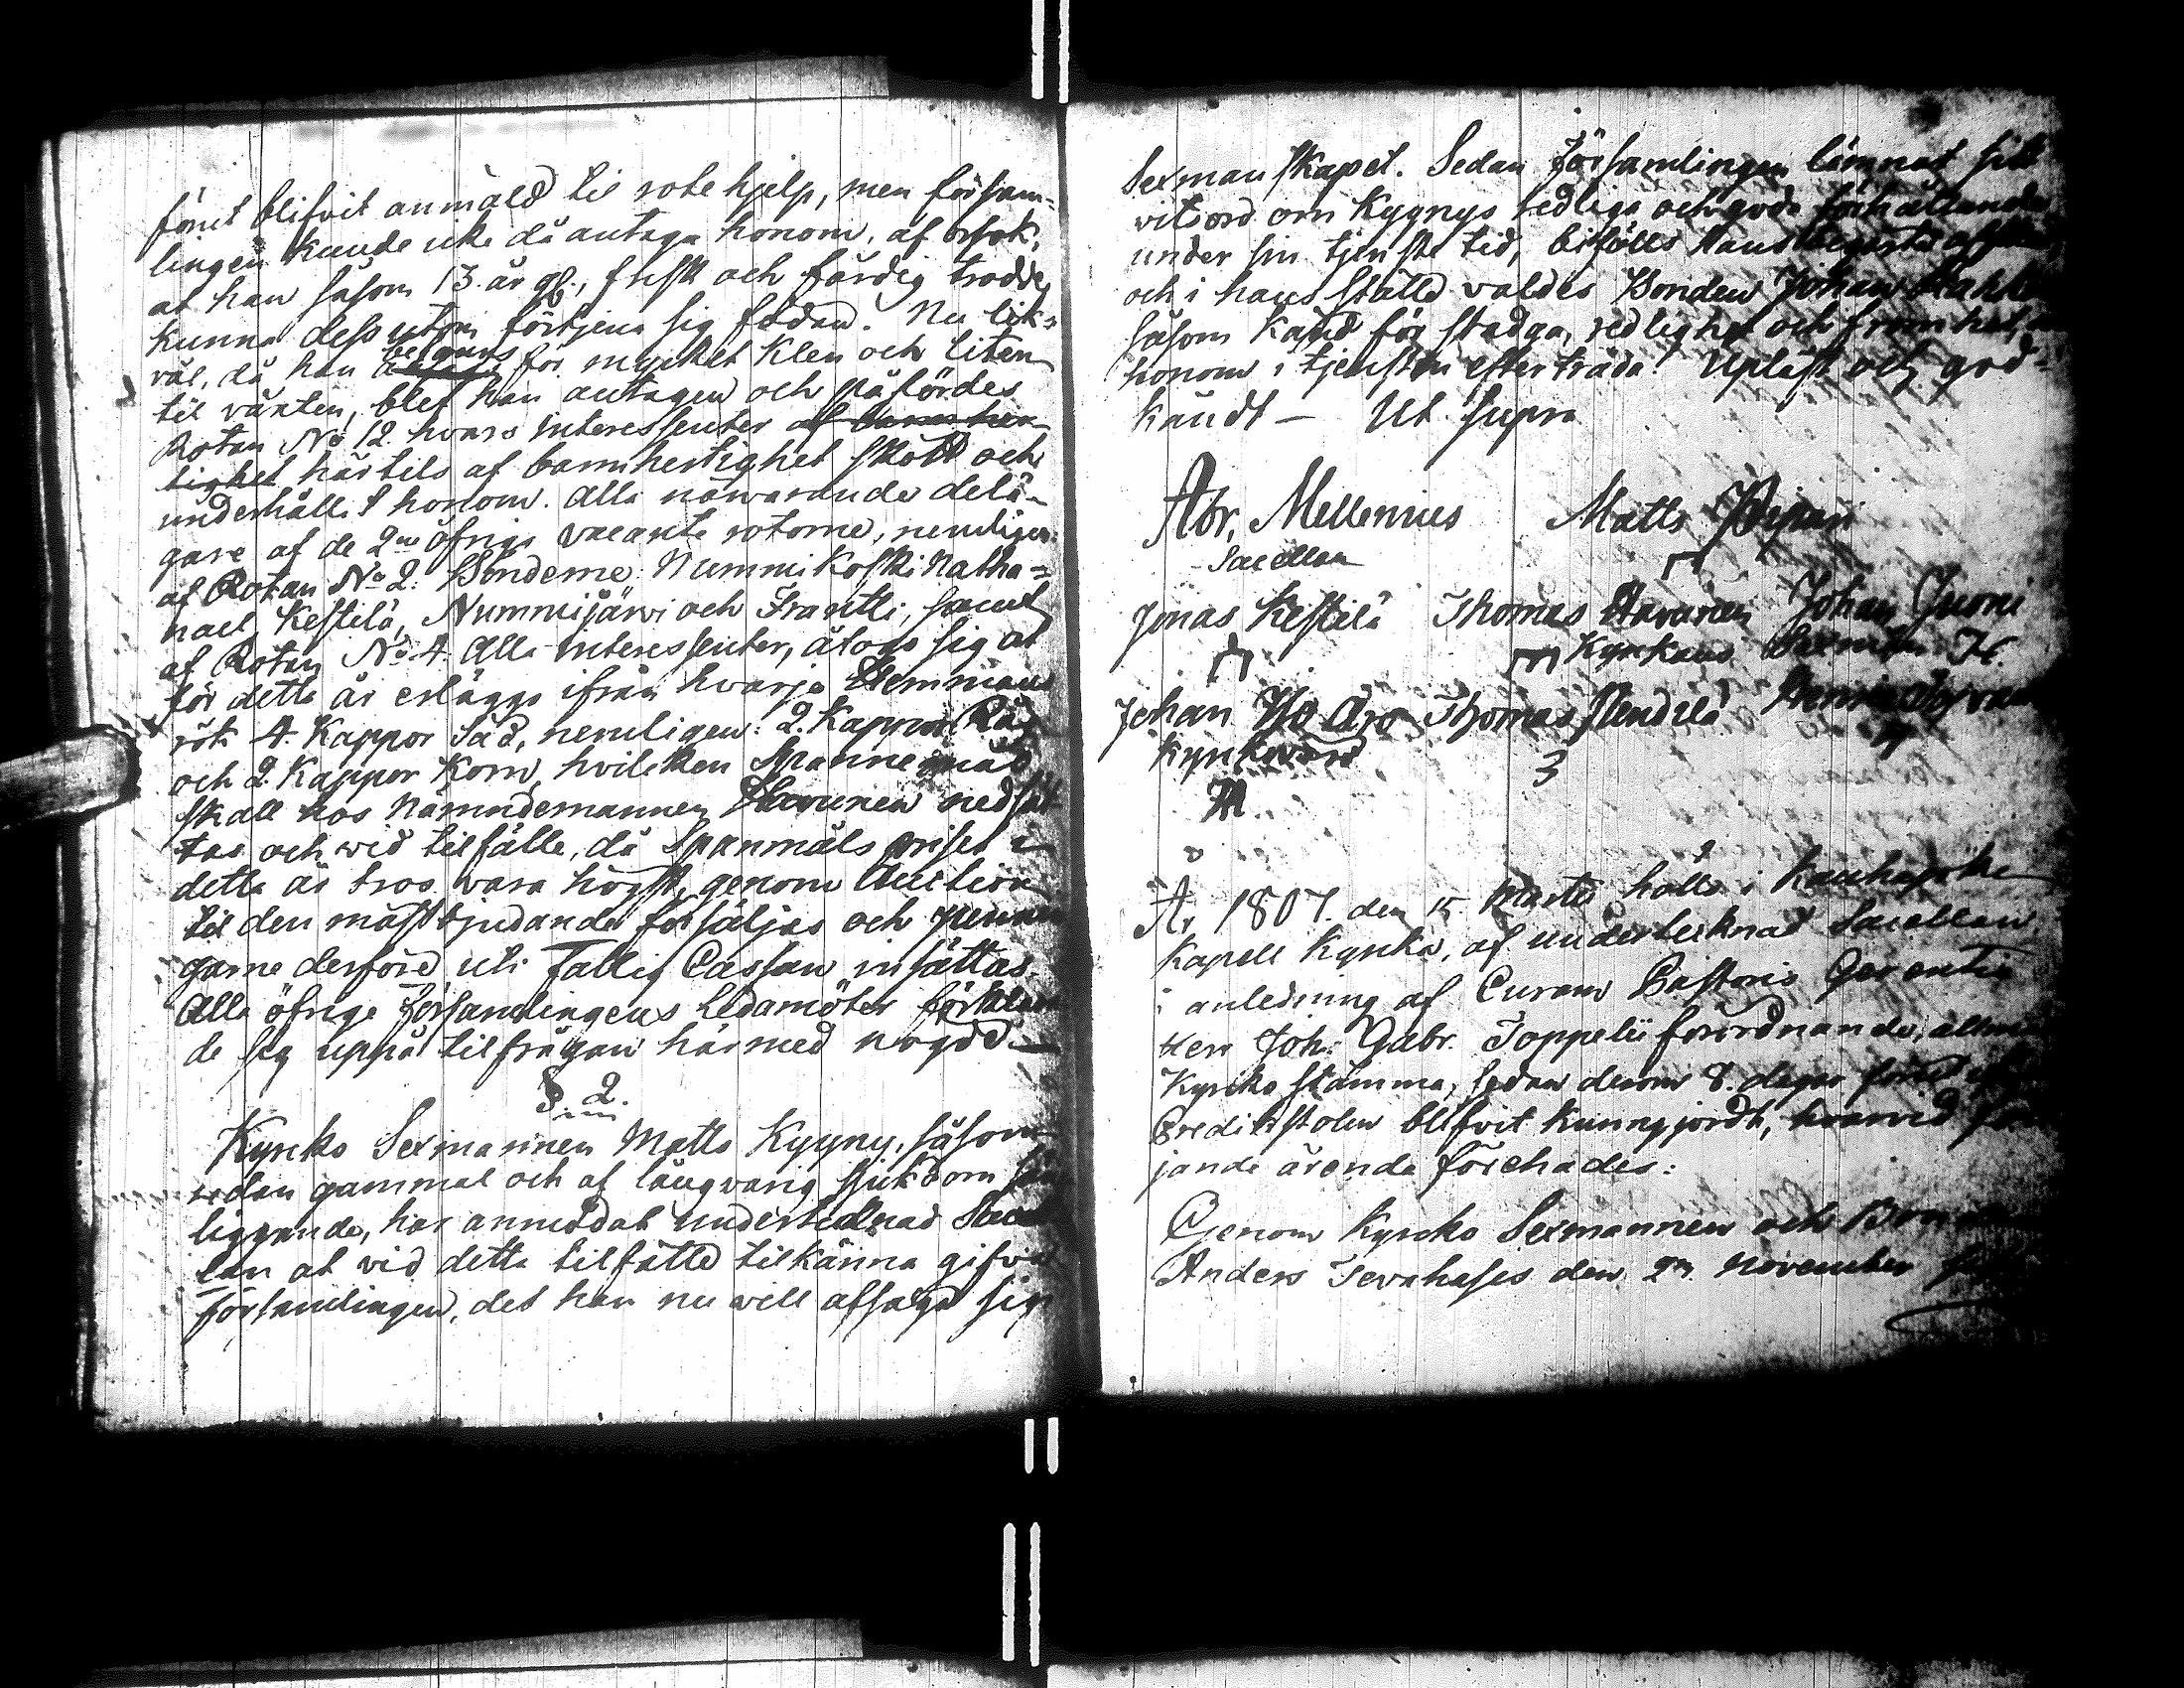 förut blifvit anmäld til rotehjelp, men försam-
lingen kunde icke då antaga honom, af orsak,
at han såsom 13. år gl., frisk och färdig trodde
kunna dessutom förtjena sig födan. Nu lik-
väl, då han befans för mycket klen och liten
til växten, blef han antagen och påfördes
Rotan No 12. hvars Interessenter af barmher-
tighet härtils af barmhertighet skött och
underhållit honom. Alla närvarande delä-
gare af de 2ne öfriga vacanta rotorne, nemligen:
af Rotan No 2. Bönderne Nummikoski Natha-
nael, Kestilä, Nummijärwi och Frantti, samt
af Rotan No 4. Alla Interessenter, åtogo sig at
för detta år erlägga ifrån hvarje Hemmans
rök 4. Kappor Säd, nemligen: 2. Kappor Råg
och 2. Kappor Korn, hvilken Spannemål
skall hos Nämndemannen Havunen nedsät-
tas och wid tilfälle, då Spanmåls priset i
detta år tros vara högst, genom Auction
til den mästbjudande försäljas och penni
garne derföre uti Fattig Cassan insättas.
Alla öfrige Församlingens Ledamöter förklara
de sig uppå tilfrågan härmed nögde.
§. 2.
Kyrko Sexmannen Matts Kyyny, såsom
redan gammal och af långwarig sjukdom
liggande, har anmodat undertecknad Sacel
lan at vid detta tilfälle tilkänna gifva
församlingen, det han nu will afsäga sig
Sexmanskapet. Sedan Församlingen lämnat sitt
vitsord om Kyynys redliga och goda förhållande
under sin tjenste tid, bifölls hans begärta afsked
och i hans ställe valdes Bonden Johan
såsom känd för stadga, redlighet och fromhet, at
honom i tjensten efterträda. Upläst och god-
kändt — Ut supra
Abr. Mellenius Matts
Sacellan
Jonas Kestilä Thomas Havunen Johan Juoni
Kyrkans Sexman
Johan Yli Aro Thomas Pendilä
Kyrkovärd
År 1807. den 15 Martii hölls i Kauhajoki
Kapell Kyrka, af undertecknad Sacellan
i anledning af Curam Pastoris Gerentis
Herr Joh. Gabr. Toppelii förordnande, allmän
Kyrko stämma, sedan derom 8. dagar förut af
Predikstolen blifvit kungjordt, hvarvid föl
jande ärende förehades:
Genom Kyrko Sexmannen och Bonden
Anders Tevahasis den 27. November